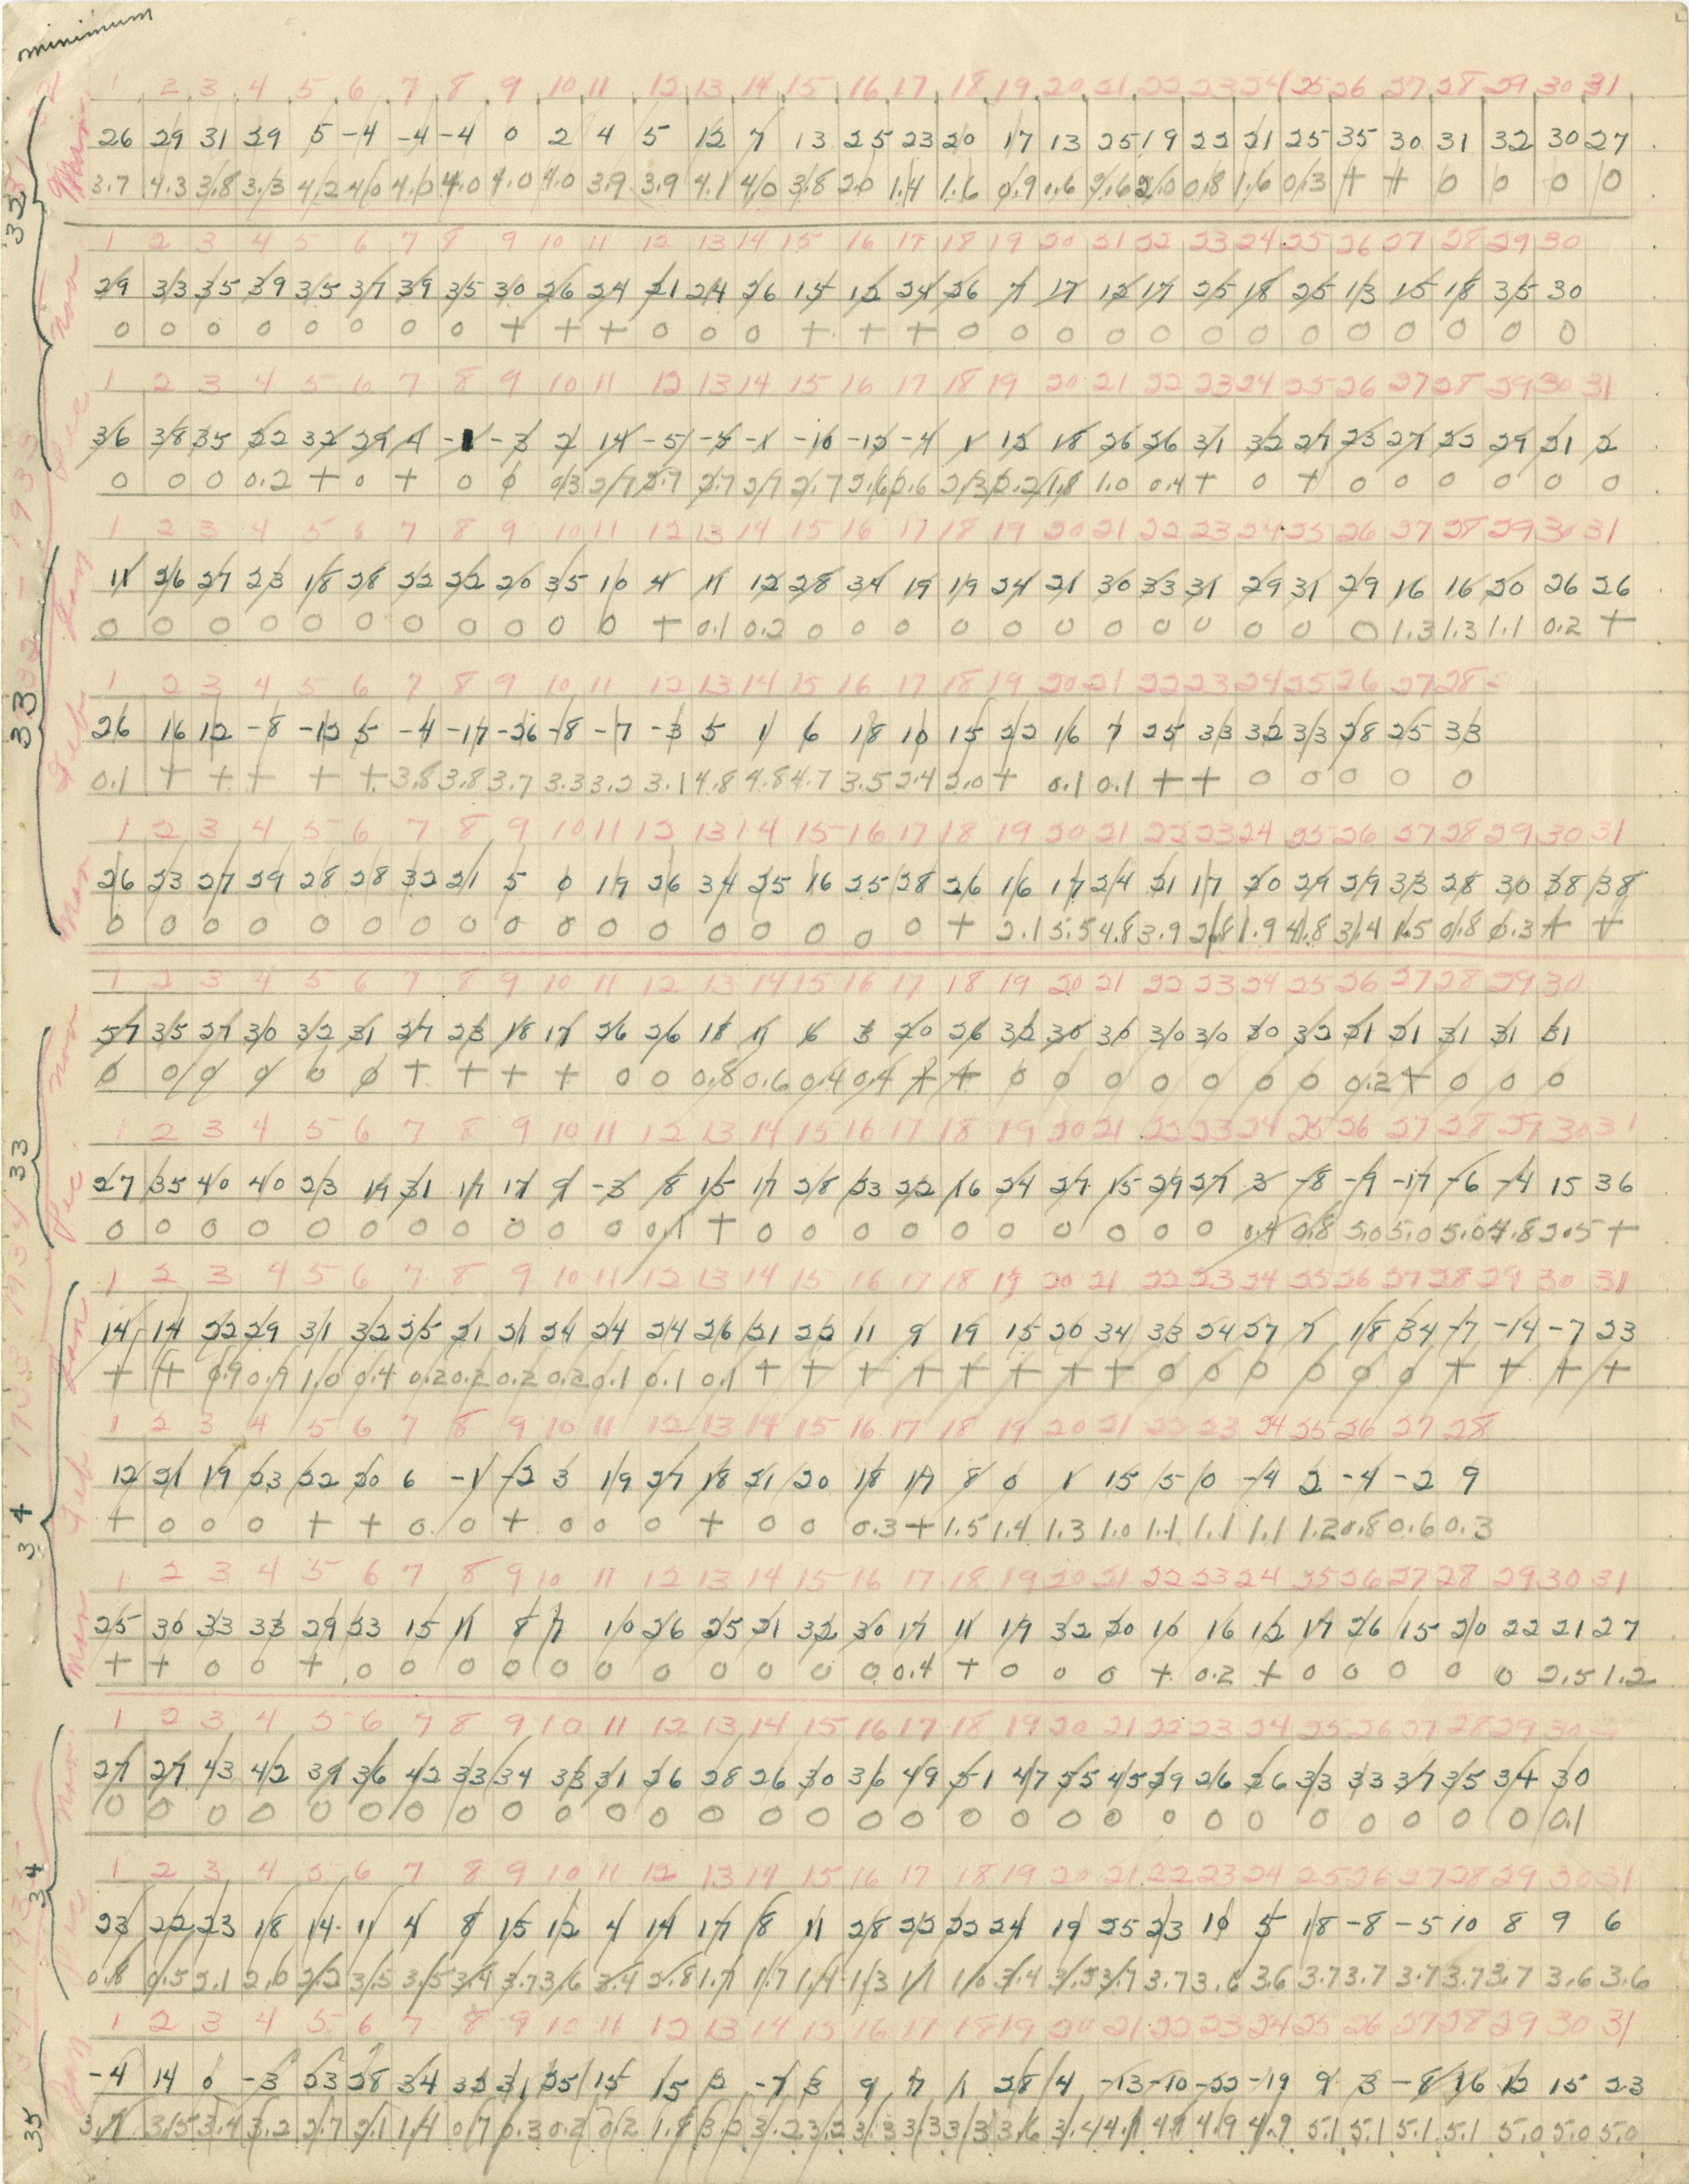 minimum
1 2 3 4 5 6 7 8 9 10 11 12 13 14 15 16 17 18 19 20 21 22 23 24 25 26 27 28 29 30 31
Mar 26 29 31 29 5 -4 -4 -4 0 2 4 5 12 7 13 25 23 20 17 13 25 19 22 21 25 35 30 31 32 30 27
3.7 4.3 3.8 3.3 4.2 4.0 4.0 4.0 4.0 4.0 3.9 3.9 4.1 4.0 3.8 2.0 1.4 1.6 0.9 0.6 2.0 0.8 1.6 0.3 + + 0 0 0 0
1 2 3 4 5 6 7 8 9 10 11 12 13 14 15 16 17 18 19 20 21 22 23 24 25 26 27 28 29 30
Nov 29 33 35 39 35 37 39 35 30 26 24 21 24 26 15 12 24 26 7 17 12 17 25 18 25 13 15 18 35 30
0 0 0 0 0 0 0 0 + + + 0 0 0 + + + 0 0 0 0 0 0 0 0 0 0 0 0 0
1 2 3 4 5 6 7 8 9 10 11 12 13 14 15 16 17 18 19 20 21 22 23 24 25 26 27 28 29 30 31
Dec 36 38 35 22 32 29 4 -3 2 14 -5 -1 -10 -12 -4 1 12 18 26 26 31 32 27 23 27 22 29 21 2
0 0 0 0.2 + 0 + 0 0 0.3 2.7 2.7 2.7 2.7 2.7 2.6 2.6 2.3 2.2 1.8 1.0 0.4 + 0 + 0 0 0 0 0 0
1 2 3 4 5 6 7 8 9 10 11 12 13 14 15 16 17 18 19 20 21 22 23 24 25 26 27 28 29 30 31
33 Jan 11 26 27 23 18 28 22 22 20 35 10 4 11 12 28 34 19 19 24 21 30 33 31 29 31 29 16 16 20 26 26
0 0 0 0 0 0 0 0 0 0 0 + 0.1 0.2 0 0 0 0 0 0 0 0 0 0 0 0 1.3 1.3 1.1 0.2 +
1 2 3 4 5 6 7 8 9 10 11 12 13 14 15 16 17 18 19 20 21 22 23 24 25 26 27 28
Feb 26 16 12 -8 -12 5 -4 -17 -26 -8 -7 -3 5 1 6 18 10 15 22 16 7 25 33 32 33 28 25 33
0.1 + + + + + 3.8 3.8 3.7 3.3 3.2 3.1 4.8 4.8 4.7 3.5 2.4 2.0 + 0.1 0.1 + + 0 0 0 0 0
1 2 3 4 5 6 7 8 9 10 11 12 13 14 15 16 17 18 19 20 21 22 23 24 25 26 27 28 29 30 31
Mar 26 23 27 29 28 28 32 21 5 0 19 26 34 25 16 25 28 26 16 17 24 21 17 20 29 29 33 28 30 38 38
0 0 0 0 0 0 0 0 0 0 0 0 0 0 0 0 0 + 2.1 5.5 4.8 3.9 2.8 1.9 4.8 3.4 1.5 0.8 0.3 + +
1 2 3 4 5 6 7 8 9 10 11 12 13 14 15 16 17 18 19 20 21 22 23 24 25 26 27 28 29 30
33 Nov 57 35 27 30 32 31 27 23 18 17 26 26 18 11 6 3 20 26 32 30 30 30 30 30 32 21 21 31 31 31
0 0 0 0 0 0 + + + + 0 0 0.8 0.6 0.4 0.4 + + 0 0 0 0 0 0 0 0.2 + 0 0 0
1 2 3 4 5 6 7 8 9 10 11 12 13 14 15 16 17 18 19 20 21 22 23 24 25 26 27 28 29 30 31
Dec. 27 35 40 40 23 19 31 17 17 9 -3 8 15 17 28 23 22 16 24 27 15 29 27 3 -8 -9 -17 -6 -4 15 36
0 0 0 0 0 0 0 0 0 0 0 0.1 + 0 0 0 0 0 0 0 0 0 0 0.4 0.8 5.0 5.0 5.0 4.8 2.5 +
1 2 3 4 5 6 7 8 9 10 11 12 13 14 15 16 17 18 19 20 21 22 23 24 25 26 27 28 29 30 31
34 Jan 14 14 22 29 31 32 25 21 21 24 24 24 26 21 22 11 9 19 15 20 34 33 24 27 7 18 34 -7 -14 -7 23
+ + 0.9 0.9 1.0 0.4 0.2 0.2 0.2 0.2 0.1 0.1 0.1 + + + + + + + + 0 0 0 0 0 0 + + + +
1 2 3 4 5 6 7 8 9 10 11 12 13 14 15 16 17 18 19 20 21 22 23 24 25 26 27 28
Feb 12 21 19 23 22 20 6 -1 -2 3 19 27 18 21 20 18 17 8 0 1 15 5 0 -4 2 -4 -2 9
+ 0 0 0 + + 0 0 + 0 0 0 + 0 0 0.3 + 1.5 1.4 1.3 1.0 1.1 1.1 1.1 1.2 0.8 0.6 0.3
1 2 3 4 5 6 7 8 9 10 11 12 13 14 15 16 17 18 19 20 21 22 23 24 25 26 27 28 29 30 31
Mar 25 30 33 33 29 23 15 11 8 7 10 26 25 21 32 30 17 11 19 32 20 10 16 12 17 26 15 20 22 21 27
+ + 0 0 + 0 0 0 0 0 0 0 0 0 0 0 0.4 + 0 0 0 + 0.2 + 0 0 0 0 0 2.5 1.2
1 2 3 4 5 6 7 8 9 10 11 12 13 14 15 16 17 18 19 20 21 22 23 24 25 26 27 28 29 30
34 Nov. 27 27 43 42 39 36 42 33 34 33 31 26 28 26 30 36 49 51 47 55 45 29 26 26 33 33 37 35 34 30
0 0 0 0 0 0 0 0 0 0 0 0 0 0 0 0 0 0 0 0 0 0 0 0 0 0 0 0 0 0.1
1 2 3 4 5 6 7 8 9 10 11 12 13 14 15 16 17 18 19 20 21 22 23 24 25 26 27 28 29 30 31
Dec 23 22 23 18 14 11 4 8 15 12 4 14 17 8 11 28 22 22 24 19 25 23 10 5 18 -8 -5 10 8 9 6
0.8 0.5 2.1 2.0 2.2 3.5 3.5 3.4 3.7 3.6 3.4 2.8 1.7 1.7 1.4 1.3 1.1 1.0 3.4 3.5 3.7 3.7 3.6 3.6 3.7 3.7 3.7 3.7 3.7 3.6 3.6
1 2 3 4 5 6 7 8 9 10 11 12 13 14 15 16 17 18 19 20 21 22 23 24 25 26 27 28 29 30 31
35 Jan -4 14 0 -3 23 28 34 32 31 25 15 15 2 -7 3 9 7 1 28 4 -13 -10 -22 -19 9 3 -8 16 12 15 23
3.7 3.5 3.4 3.2 2.7 2.1 1.4 0.7 0.3 0.2 0.2 1.8 3.2 3.2 3.2 3.3 3.3 3.3 3.6 3.4 4.1 4.9 4.9 4.9 5.1 5.1 5.1 5.1 5.0 5.0 5.0